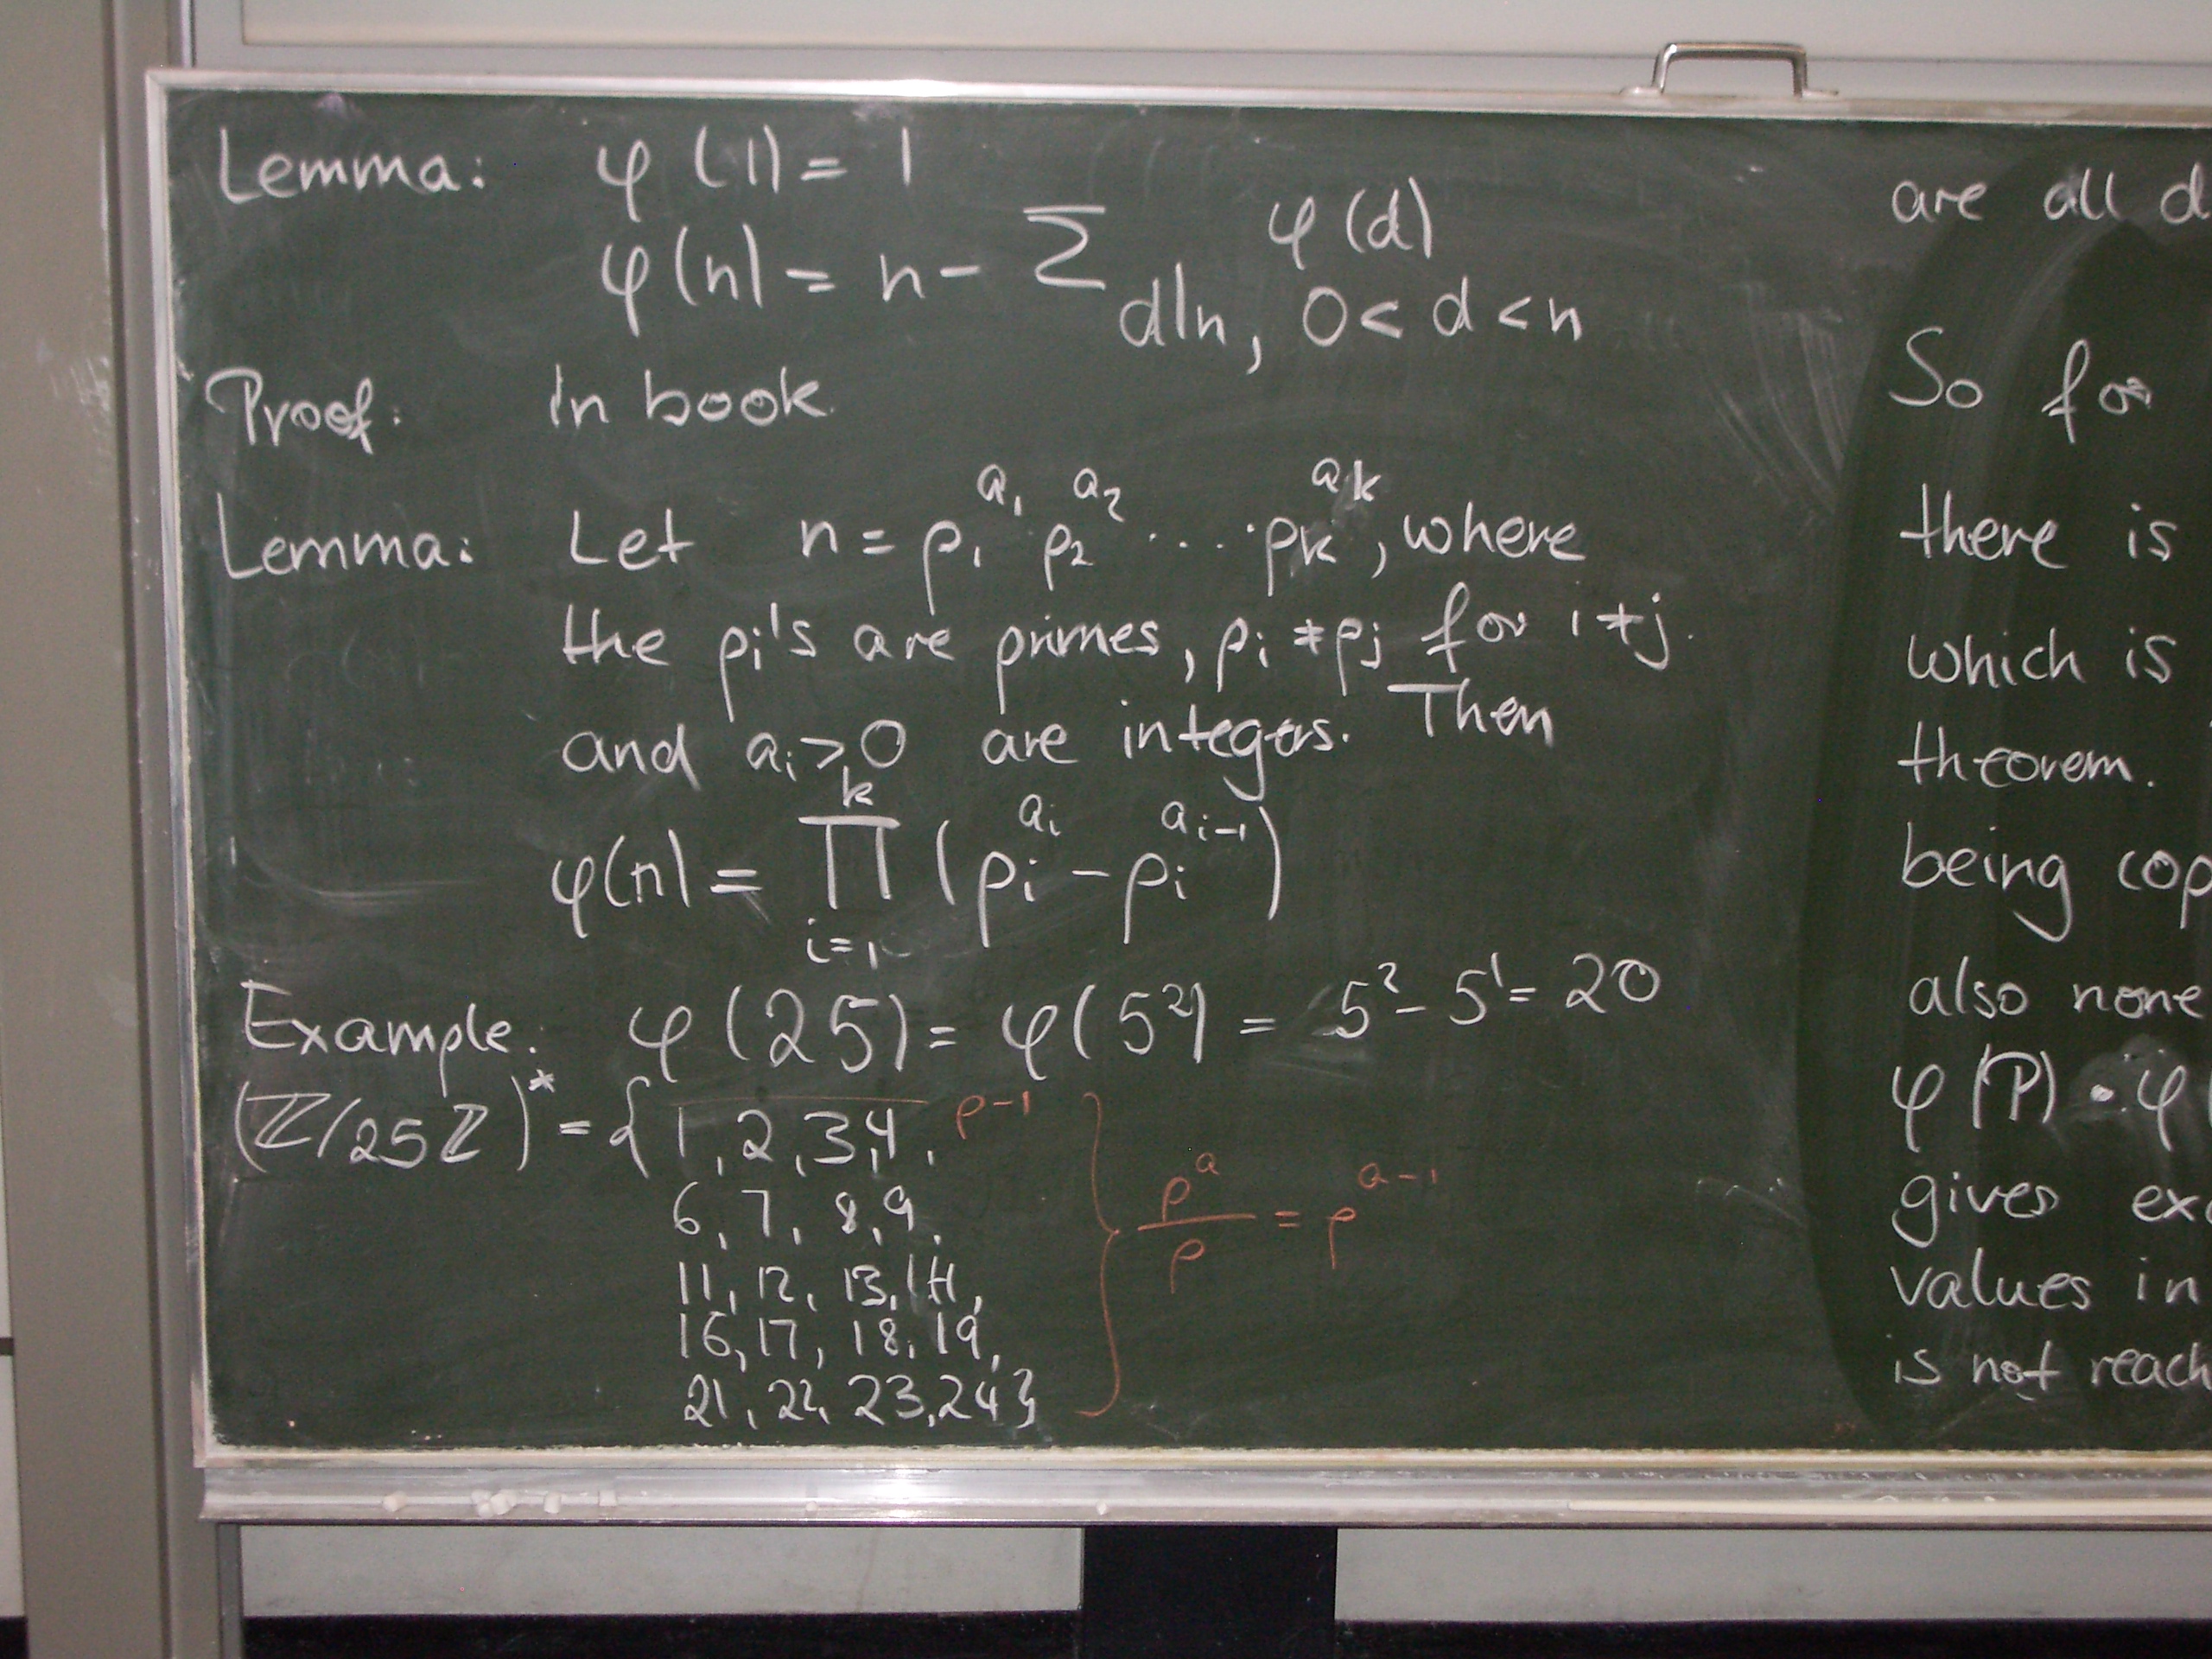 Lemma: φ(1) = 1
φ(n) = n - Σ φ(d)
d|n, 0 < d < n
Proof: In book.
Lemma: Let n = p₁^a₁ p₂^a₂ ... · pₖ^aₖ, where
the pᵢ's are primes, pᵢ ≠ pⱼ for i ≠ j.
and aᵢ > 0 are integers. Then
φ(n) = ∏ᵢ₌₁ᵏ (pᵢ^aᵢ - pᵢ^aᵢ₋₁)
Example: φ(25) = φ(5²) = 5² - 5¹ = 20
(ℤ/25ℤ)* = { 1, 2, 3, 4, p-1
6, 7, 8, 9,
p^a / p = p^a-1
11, 12, 13, 14,
16, 17, 18, 19,
21, 22, 23, 24 }
are all
So for
there is
which is
theorem.
being
also none
φ(P) · φ
gives
values in
is not